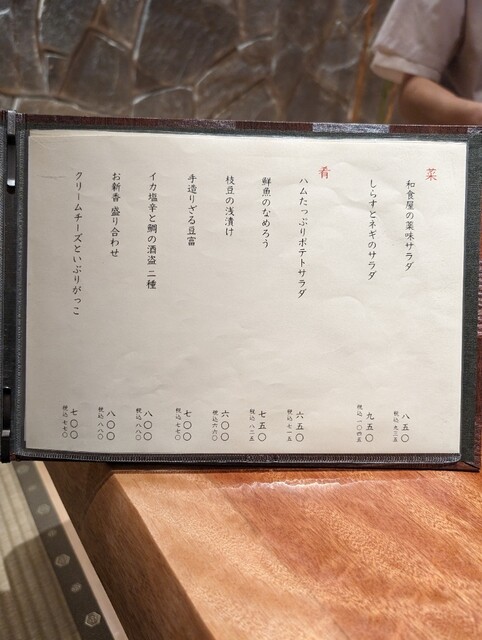 菜
和食屋の薬味サラダ
八五〇
税込 九三五
しらすとネギのサラダ
九五〇
税込 一〇四五
肴
ハムたっぷりポテトサラダ
六五〇
税込 七一五
鮮魚のなめろう
七五〇
税込 八二五
枝豆の浅漬け
六〇〇
税込 六六〇
手造りざる豆富
七〇〇
税込 七七〇
イカ塩辛と鯛の酒盗 二種
八〇〇
税込 八八〇
お新香 盛り合わせ
八〇〇
税込 八八〇
クリームチーズといぶりがっこ
七〇〇
税込 七七〇